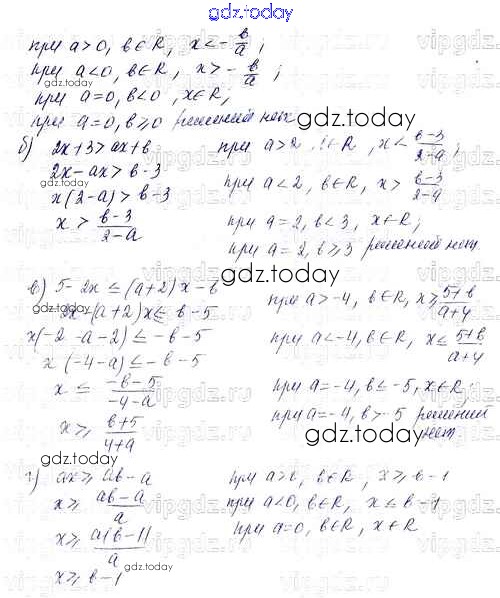 gdz.today
при a>0, b∈R, x<-b/a;
при a<0, b∈R, x>-b/a;
при a=0, b<0, x∈R;
при a=0, b⩾0 решений нет.
gdz.today
б) 2x+3>ax+b
2x-ax>b-3
x(2-a)>b-3
x>(b-3)/(2-a)
при a>2, b∈R, x<(b-3)/(2-a);
при a<2, b∈R, x>(b-3)/(2-a)
при a=2, b<3, x∈R;
при a=2, b⩾3 решений нет.
gdz.today
gdz.today
в) 5-2x≤(a+2)x-b
-2x-(a+2)x≤-b-5
x(-2-a-2)≤-b-5
x(-4-a)≤-b-5
x≤(-b-5)/(-4-a)
x⩾(b+5)/(4+a)
при a>-4, b∈R, x⩾(5+b)/(a+4)
при a<-4, b∈R, x≤(5+b)/(a+4)
при a=-4, b≤-5, x∈R;
при a=-4, b>-5 решений нет.
gdz.today
gdz.today
г) ax⩾ab-a
x⩾(ab-a)/a
x⩾a(b-1)/a
x⩾b-1
при a>0, b∈R, x⩾b-1
при a<0, b∈R, x≤b-1
при a=0, b∈R, x∈R
gdz.today
gdz.today